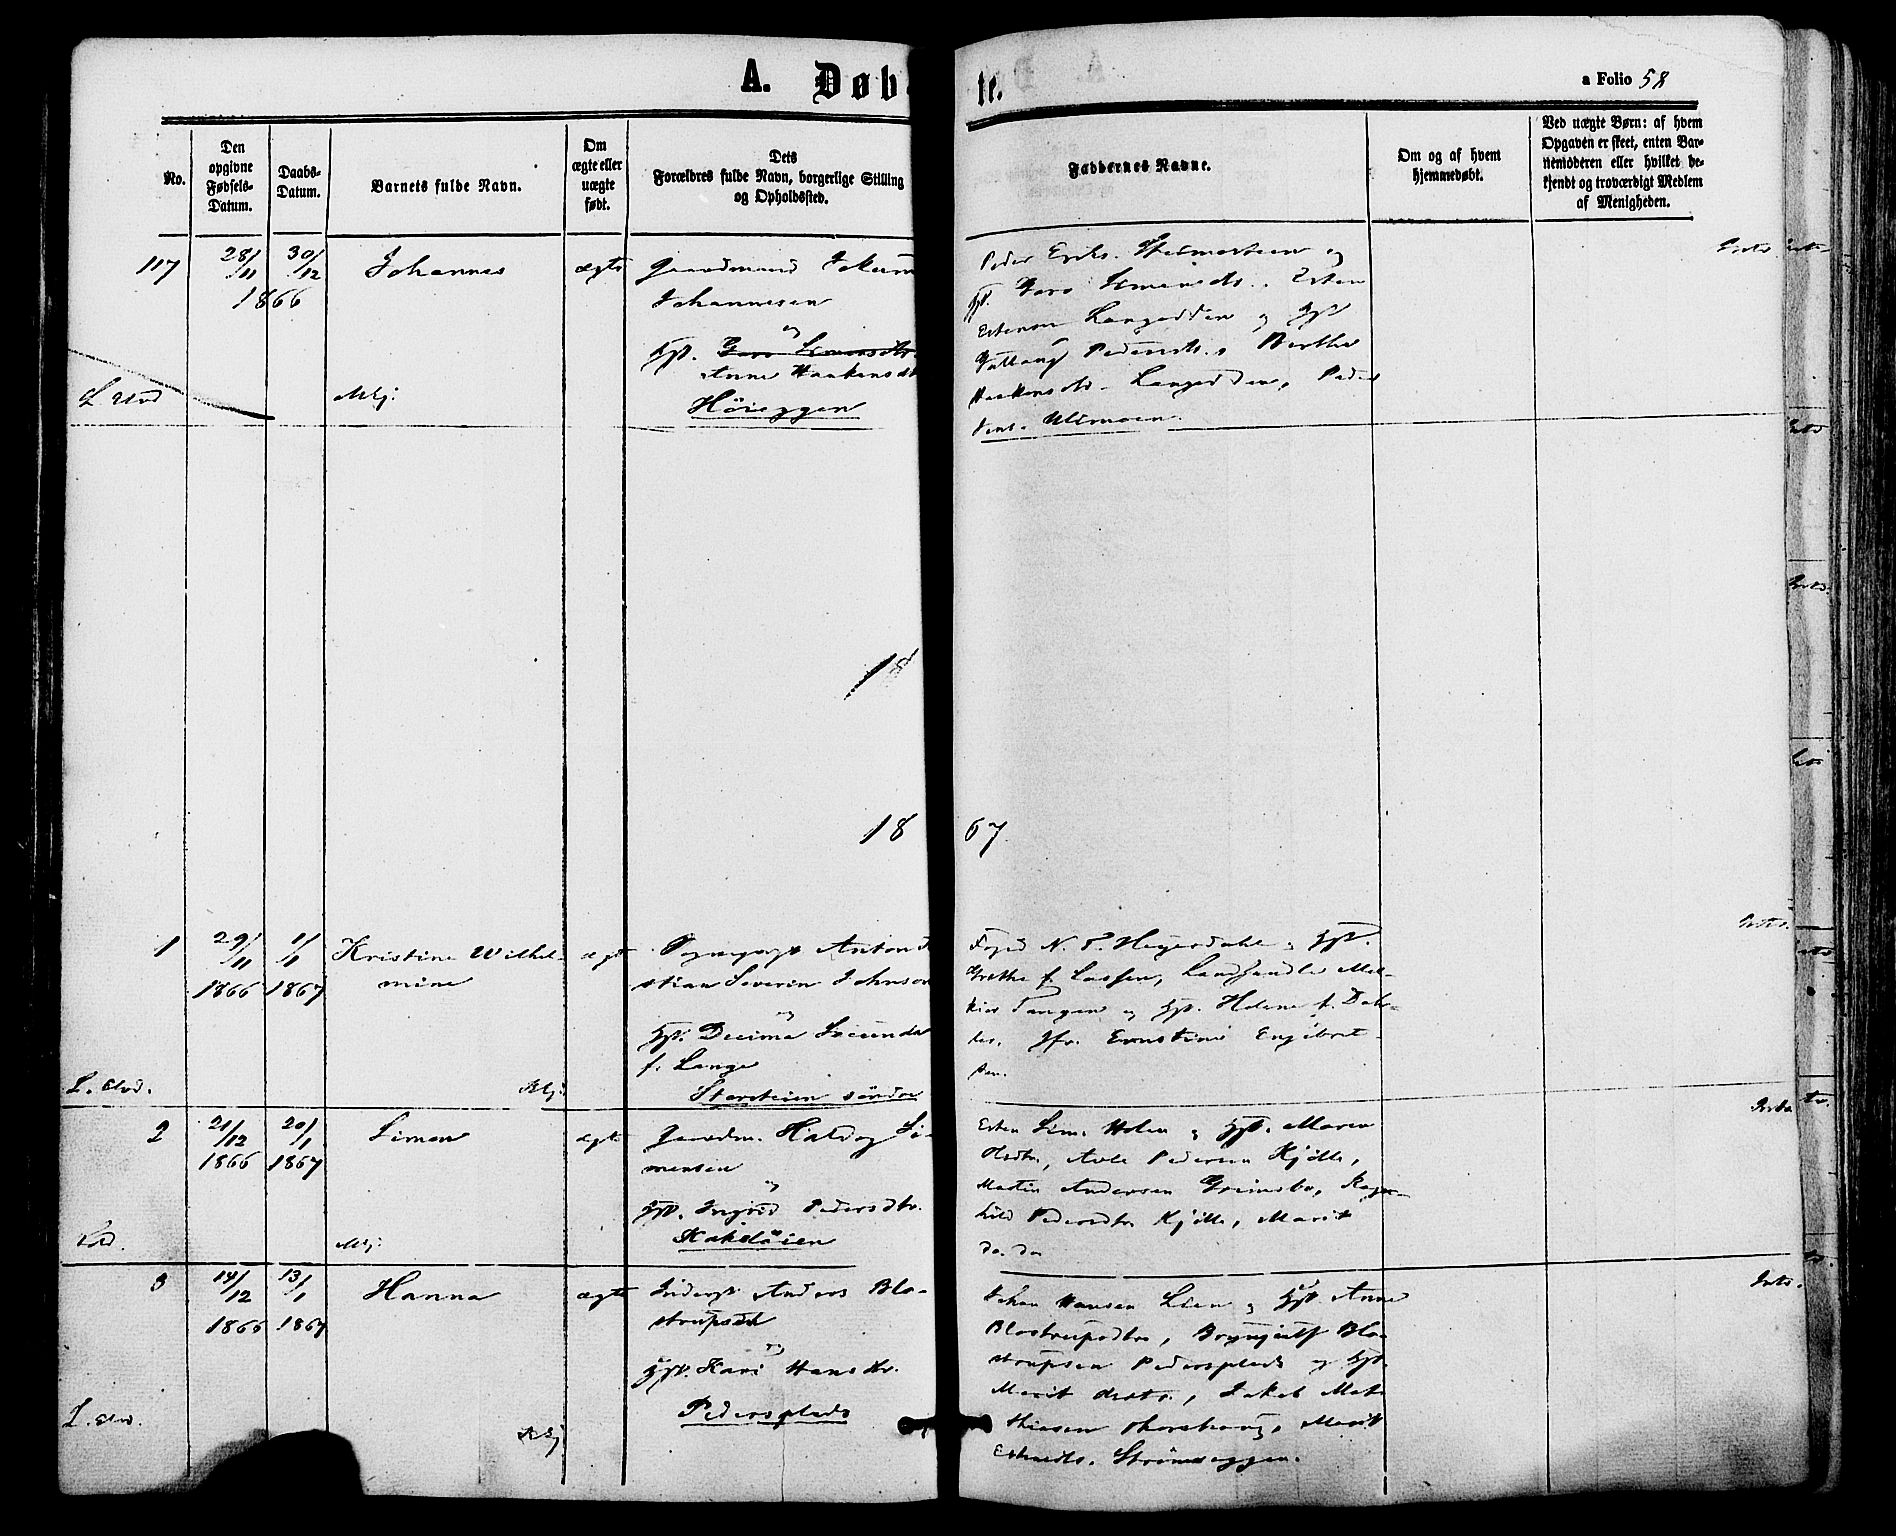 A. Døbte.
a Folio 58
No.
Den opgivne Fødsels-Datum.
Daabs-Datum.
Barnets fulde Navn.
Om ægte eller uægte født.
Dets Forældres fulde Navn, borgerlige Stilling og Opholdssted.
Faddernes Navne.
Om og af hvem hjemmedøbt.
Ved uægte Børn: af hvem Opgaven er skeet, enten Barnemoderen eller hvilket bekjendt og troværdigt Medlem af Menigheden.
117
28/11 30/12
1866
Johannes
ægte
Gaardmand
Johannesen
og
Hst. Goro Simensdtr.
Anne Haakensdt
Høieggen
L. Elvd
Mkj.
Peder Eriks.
og
Hst. Goro
Esten
Estensen
og Hst
Pedersdt., Berthe
Haakensdtr.
Peder
18
18 67
1
29/11 1/1
1866 1867
Kristine Wilhel-
mine
ægt
Anton
stian Severin Johnsen
og
Hst. Decima Secunda
f. Lange
Storsteien søndre
L. Elvd.
Foged N. T. Heyerdahl og Hst.
Grethe f. Lassen, Landhandler Mel-
kior Tangen og Hst. Helene f. Dah-
Jfr. Ernstine Engebret-
sen.
2
21/12 20/1
1866 1867
Simon
ægte
Gaardm. Haldog Si-
mensen
og
Hst. Ingrid Pedersdtr.
Kakeløien
Mkj.
Esten Sim. Holen og Hst. Maren
Olsdtr, Avle Pedersen Kjølle,
Martin Andersen Grimsbo, Ragn-
hild Pedersdtr Kjølle, Marit
do. do
3
14/12 13/1
1866 1867
Hanna
ægte
Inderst Anders Bla-
strupsen
og
Hst. Kari Hansdtr.
Pedersplads
L. Elvd.
Johan Hansen Lien og Hst. Anne
Blastrupsdtr, Brynjulf Bla-
strupsen Pedersplads og Hst.
Marit Olsdtr., Jakob Mat-
thiesen Thorshaug, Marit
Estensdtr. Strømseggen.